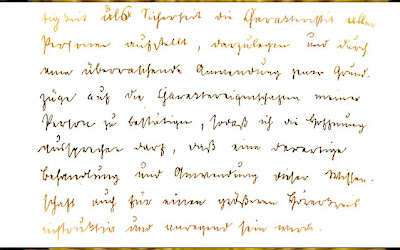 tigkeit als Sicherheit die Charakteristik aller
Personen aufstellt, darzulegen und durch
eine überraschende Anwendung jener Grund-
züge auf die Charaktereigenschaften meiner
Person zu bestätigen, sodaß ich die Hoffnung
aussprechen darf, daß eine derartige
Behandlung und Anwendung dieser Wissen-
schaft auch für einen größeren Hörerkreis
instruktiv und anregend sein werde.